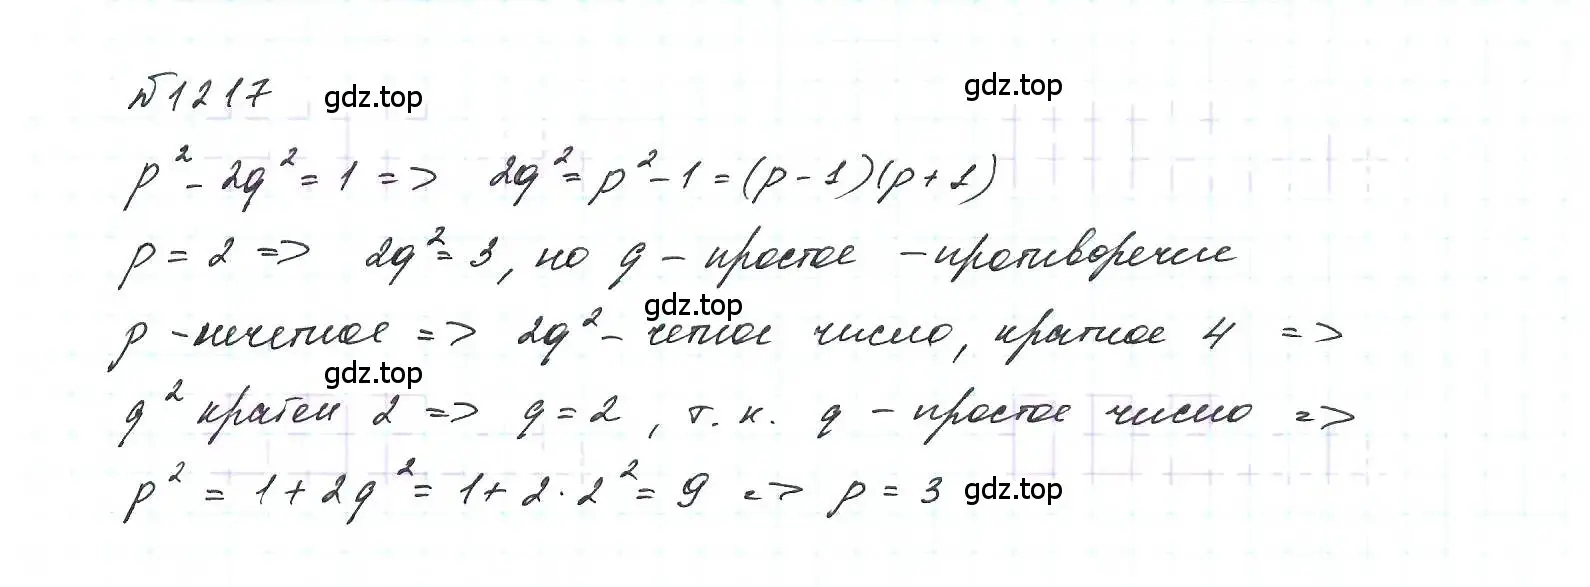 №1217 gdz.top gdz.top
p² - 2q² = 1 => 2q² = p² - 1 = (p - 1)(p + 1)
p = 2 => 2q² = 3, но q - простое - противоречие
gdz.top
p - нечетное => 2q² - четное число, кратное 4 =>
gdz.top
q² кратен 2 => q = 2, т. к. q - простое число =>
p² = 1 + 2q² = 1 + 2 · 2² = 9 => p = 3 gdz.top